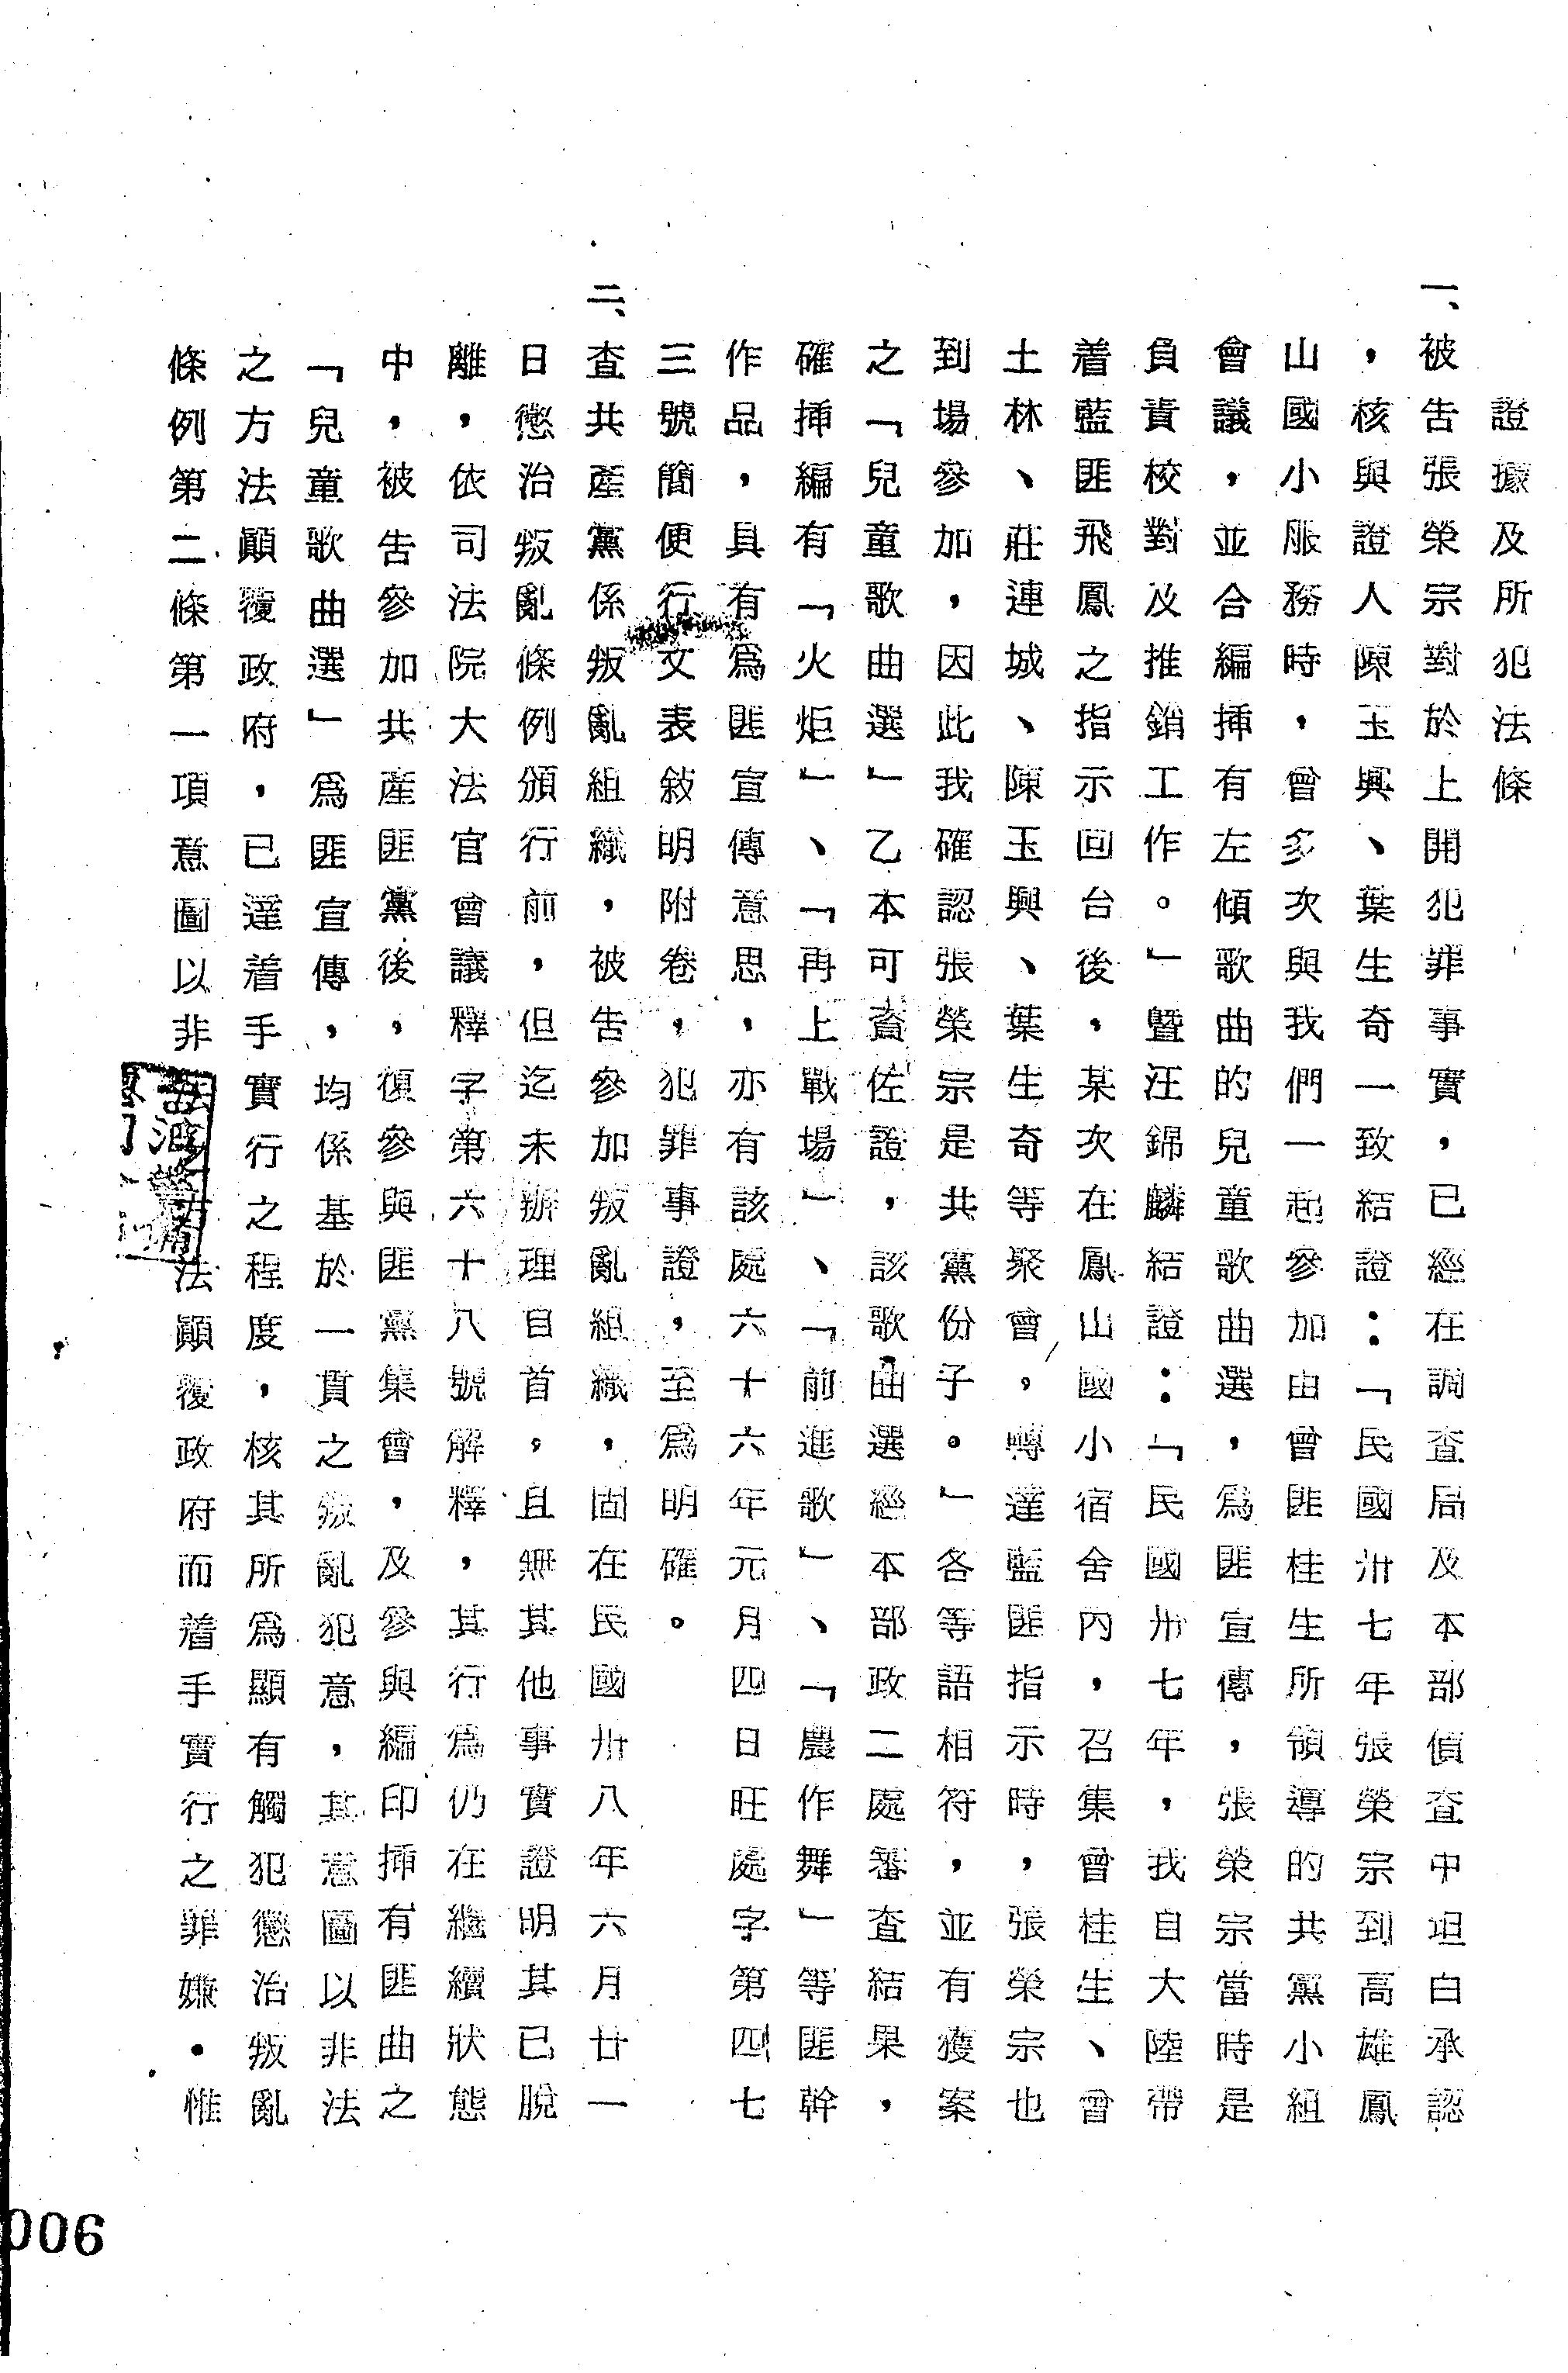 證據及所犯法條
一、被告張榮宗對於上開犯罪事實，已經在調查局及本部偵查中坦白承認
，核與證人陳玉興、葉生奇一致結證：「民國卅七年張榮宗到高雄鳳
山國小服務時，曾多次與我們一起參加由曾匪桂生所領導的共黨小組
會議，並合編挿有左傾歌曲的兒童歌曲選，為匪宣傳，張榮宗當時是
負責校對及推銷工作。」暨汪錦麟結證：「民國卅七年，我自大陸帶
着藍匪飛鳳之指示回台後，某次在鳳山國小宿舍內，召集曾桂生、曾
土林、莊連城、陳玉興、葉生奇等聚會，轉達藍匪指示時，張榮宗也
到場參加，因此我確認張榮宗是共黨份子。」各等語相符，並有獲案
之「兒童歌曲選」乙本可資佐證，該歌曲選經本部政二處審查結果，
確挿編有「火炬」、「再上戰場」、「前進歌」、「農作舞」等匪幹
作品，具有為匪宣傳意思，亦有該處六十六年元月四日旺處字第四七
三號簡便行文表敍明附卷，犯罪事證，至為明確。
二、查共產黨係叛亂組織，被告參加叛亂組織，固在民國卅八年六月廿一
日懲治叛亂條例頒行前，但迄未辦理自首，且無其他事實證明其已脫
離，依司法院大法官會議釋字第六十八號解釋，其行為仍在繼續狀態
中，被告參加共產匪黨後，復參與匪黨集會，及參與編印挿有匪曲之
「兒童歌曲選」為匪宣傳，均係基於一貫之叛亂犯意，其意圖以非法
之方法顚覆政府，已達着手實行之程度，核其所為顯有觸犯懲治叛亂
條例第二條第一項意圖以非法之方法顚覆政府而着手實行之罪嫌。惟
006